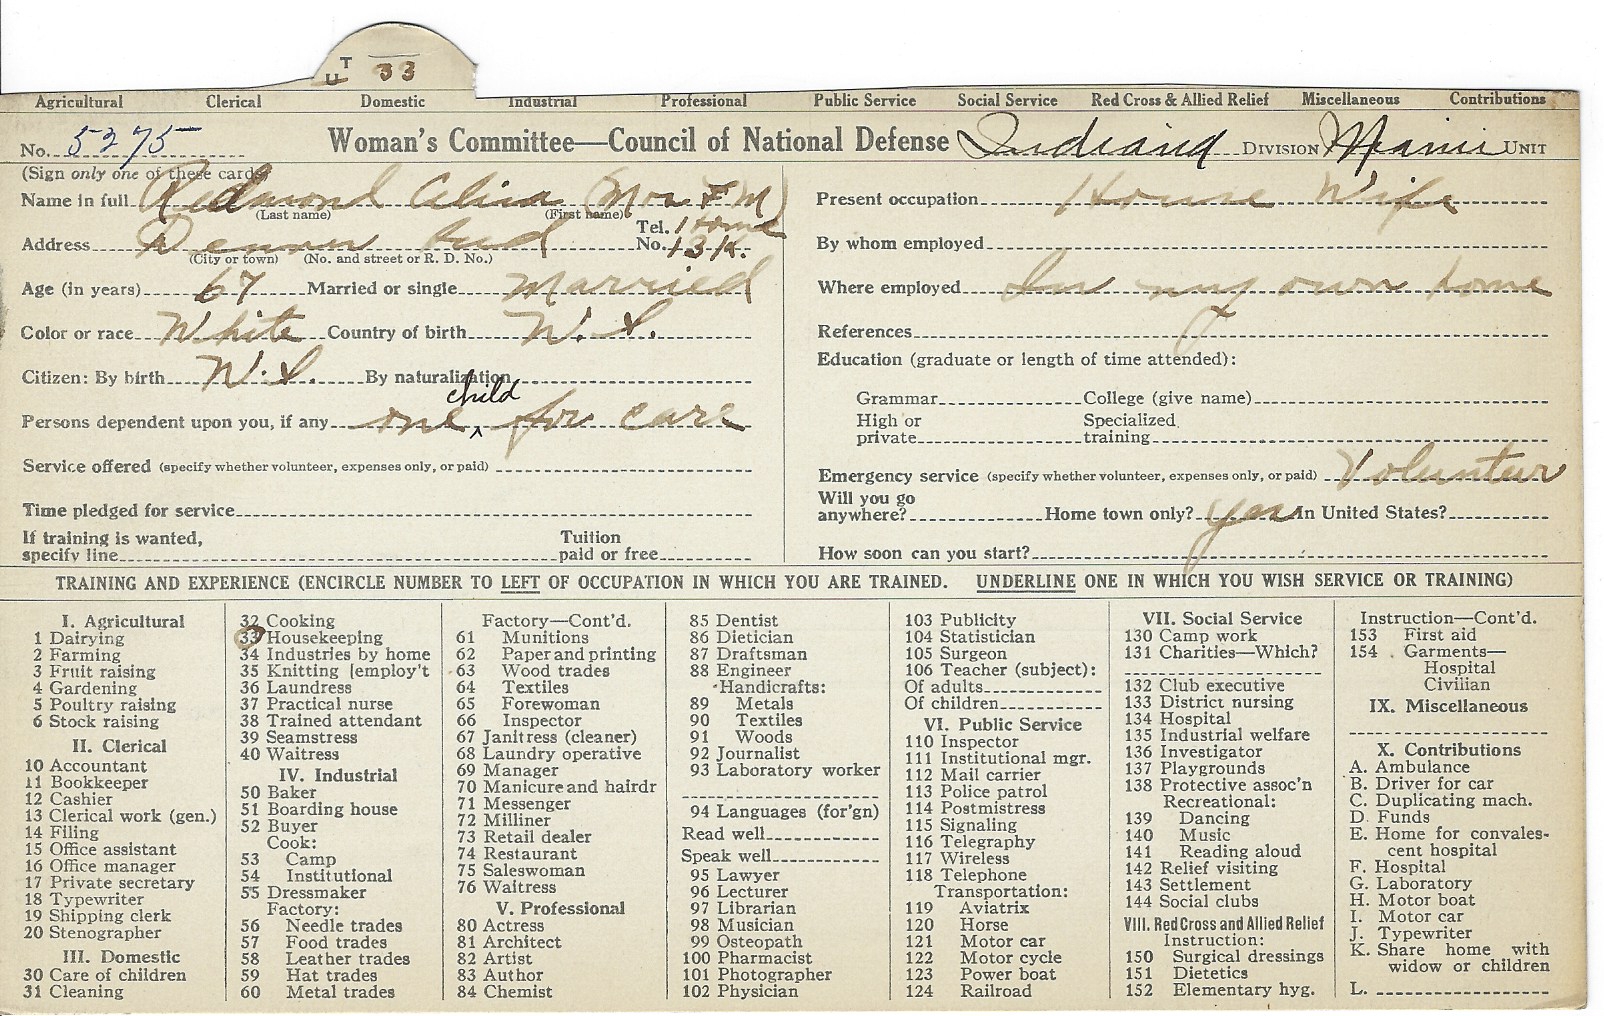 UT 33
Agricultural Clerical Domestic Industrial Professional Public Service Social Service Red Cross & Allied Relief Miscellaneous Contributions
No. 5275 Woman's Committee—Council of National Defense Indiana DIVISION Miami UNIT
(Sign only one of these cards)
Name in full Redmond (Mrs F M)
(Last name) (First name)
Address Denver Ind Tel. No. Home 13K.
(City or town) (No. and street or R. D. No.)
Age (in years) 67 Married or single Married
Color or race White Country of birth U.S.
Citizen: By birth U.S. By naturalization
Persons dependent upon you, if any one child for care
Service offered (specify whether volunteer, expenses only, or paid)
Time pledged for service
If training is wanted, specify line Tuition paid or free
Present occupation House Wife
By whom employed
Where employed In my own home
References
Education (graduate or length of time attended):
Grammar College (give name)
High or private Specialized training
Emergency service (specify whether volunteer, expenses only, or paid) Volunteer
Will you go anywhere? Home town only? Yes In United States?
How soon can you start?
TRAINING AND EXPERIENCE (ENCIRCLE NUMBER TO LEFT OF OCCUPATION IN WHICH YOU ARE TRAINED. UNDERLINE ONE IN WHICH YOU WISH SERVICE OR TRAINING)
I. Agricultural
1 Dairying
2 Farming
3 Fruit raising
4 Gardening
5 Poultry raising
6 Stock raising
II. Clerical
10 Accountant
11 Bookkeeper
12 Cashier
13 Clerical work (gen.)
14 Filing
15 Office assistant
16 Office manager
17 Private secretary
18 Typewriter
19 Shipping clerk
20 Stenographer
III. Domestic
30 Care of children
31 Cleaning
32 Cooking
33 Housekeeping
34 Industries by home
35 Knitting [employ't
36 Laundress
37 Practical nurse
38 Trained attendant
39 Seamstress
40 Waitress
IV. Industrial
50 Baker
51 Boarding house
52 Buyer
Cook:
53 Camp
54 Institutional
55 Dressmaker
Factory:
56 Needle trades
57 Food trades
58 Leather trades
59 Hat trades
60 Metal trades
Factory—Cont'd.
61 Munitions
62 Paper and printing
63 Wood trades
64 Textiles
65 Forewoman
66 Inspector
67 Janitress (cleaner)
68 Laundry operative
69 Manager
70 Manicure and hairdr
71 Messenger
72 Milliner
73 Retail dealer
74 Restaurant
75 Saleswoman
76 Waitress
V. Professional
80 Actress
81 Architect
82 Artist
83 Author
84 Chemist
85 Dentist
86 Dietician
87 Draftsman
88 Engineer
Handicrafts:
89 Metals
90 Textiles
91 Woods
92 Journalist
93 Laboratory worker
94 Languages (for'gn)
Read well
Speak well
95 Lawyer
96 Lecturer
97 Librarian
98 Musician
99 Osteopath
100 Pharmacist
101 Photographer
102 Physician
103 Publicity
104 Statistician
105 Surgeon
106 Teacher (subject):
Of adults
Of children
VI. Public Service
110 Inspector
111 Institutional mgr.
112 Mail carrier
113 Police patrol
114 Postmistress
115 Signaling
116 Telegraphy
117 Wireless
118 Telephone
Transportation:
119 Aviatrix
120 Horse
121 Motor car
122 Motor cycle
123 Power boat
124 Railroad
VII. Social Service
130 Camp work
131 Charities—Which?
132 Club executive
133 District nursing
134 Hospital
135 Industrial welfare
136 Investigator
137 Playgrounds
138 Protective assoc'n
Recreational:
139 Dancing
140 Music
141 Reading aloud
142 Relief visiting
143 Settlement
144 Social clubs
VIII. Red Cross and Allied Relief
Instruction:
150 Surgical dressings
151 Dietetics
152 Elementary hyg.
Instruction—Cont'd.
153 First aid
154 Garments—
Hospital
Civilian
IX. Miscellaneous
X. Contributions
A. Ambulance
B. Driver for car
C. Duplicating mach.
D. Funds
E. Home for convales-
cent hospital
F. Hospital
G. Laboratory
H. Motor boat
I. Motor car
J. Typewriter
K. Share home with
widow or children
L.